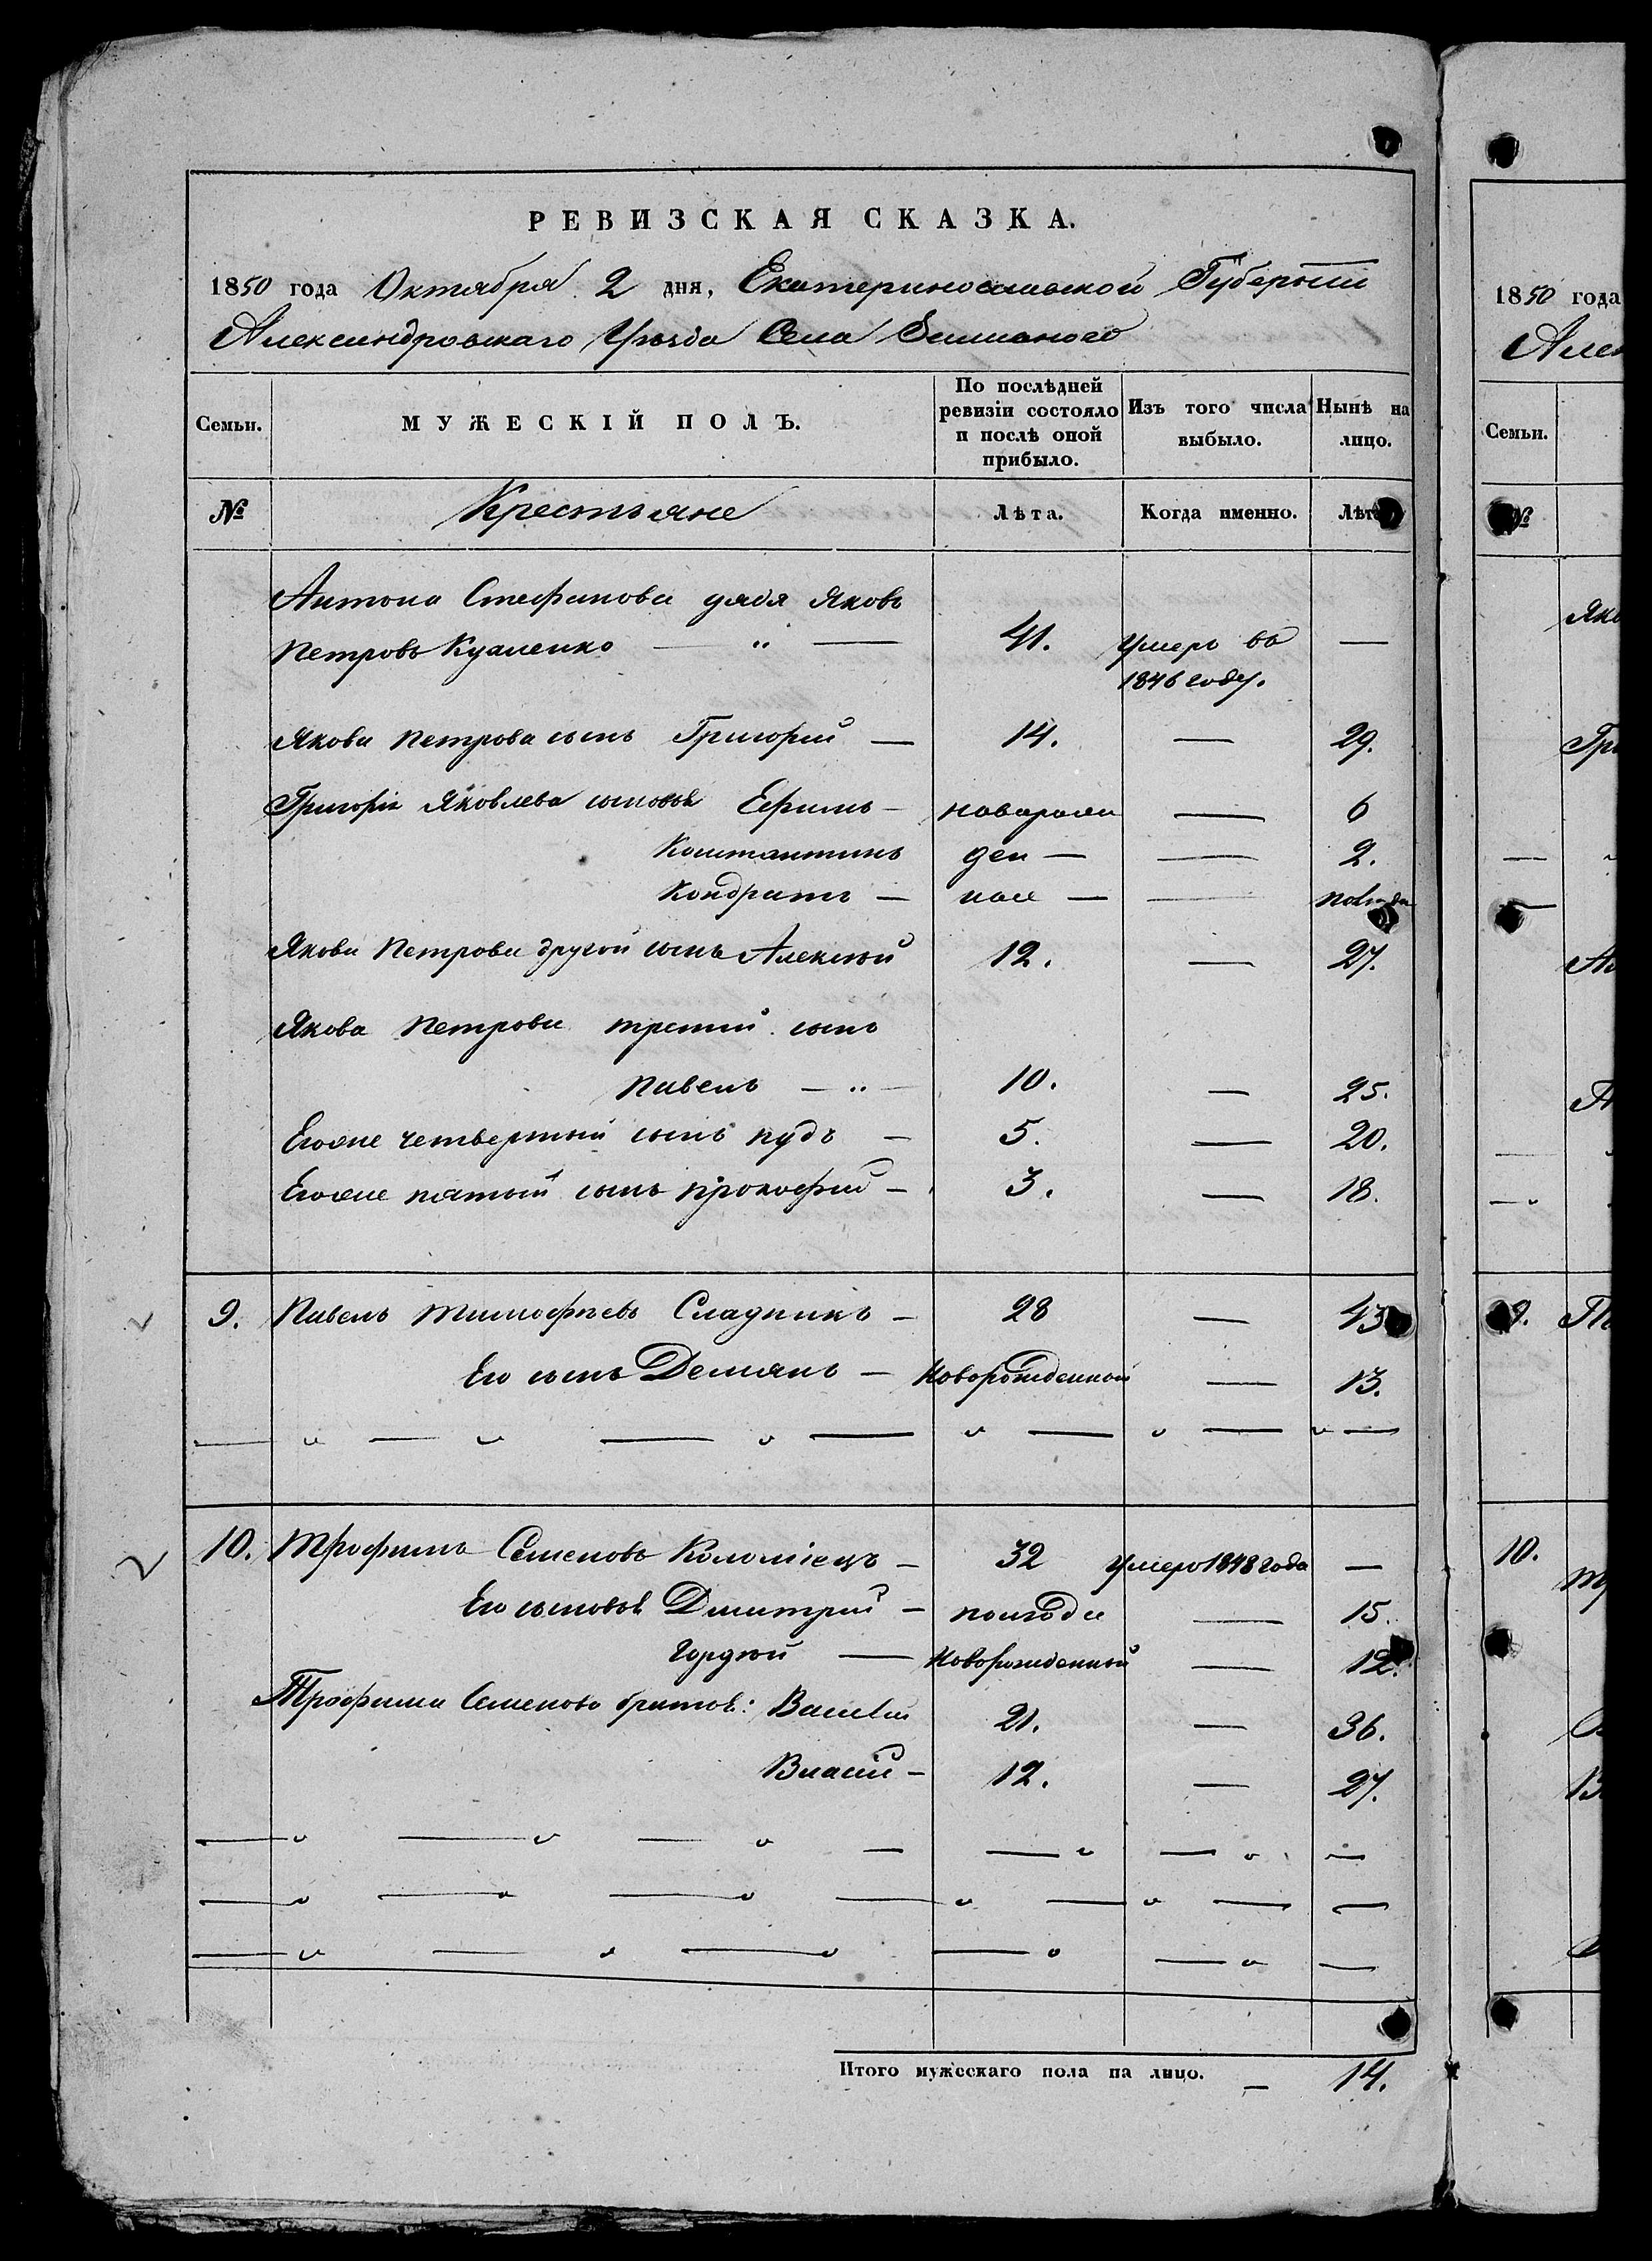 РЕВИЗСКАЯ СКАЗКА.
1850 года Октября 2 дня, Екатеринославской Губернии
Александровскаго Уѣзда Села
Семьи. МУЖЕСКІЙ ПОЛЪ. По послѣдней ревизіи состояло и послѣ оной прибыло. Изъ того числа выбыло. Нынѣ на лицо.
№ Крестьяне Лѣта. Когда именно. Лѣта
Антона Стефанова дядя Яковъ
Петровъ — " — 41. Умеръ въ —
1846 году.
Якова Петрова сынъ Григорій — 14. — 29.
Григорія Яковлева сыновья Ефимъ — новорож — 6
Константинъ ден — — 2.
Кондратъ — ные — — полгода
Якова Петрова другой сынъ Алексѣй 12. — 27.
Якова Петрова третій сынъ
Павелъ — " — 10. — 25.
Егоже четвертый сынъ пудъ — 5. — 20.
Егоже пятый сынъ прокофій — 3. — 18.
9. Павелъ тимофѣевъ Сладникъ — 28 — 43
Его сынъ Демянъ — Новорожденный — 13.
10. трофимъ Семеновъ Коломіецъ — 32 Умеръ 1848 года —
Его сыновья Дмитрий — полгода — 15.
Гордѣй — Новорожденный — 12.
Трофима Семенова братья: Василій 21. — 36.
Власій — 12. — 27.
Итого мужескаго пола на лицо. — 14.
1850 года
Алек
Семьи.
№
Яко
Гри
Ал
П
9. П
10.
Тр
В